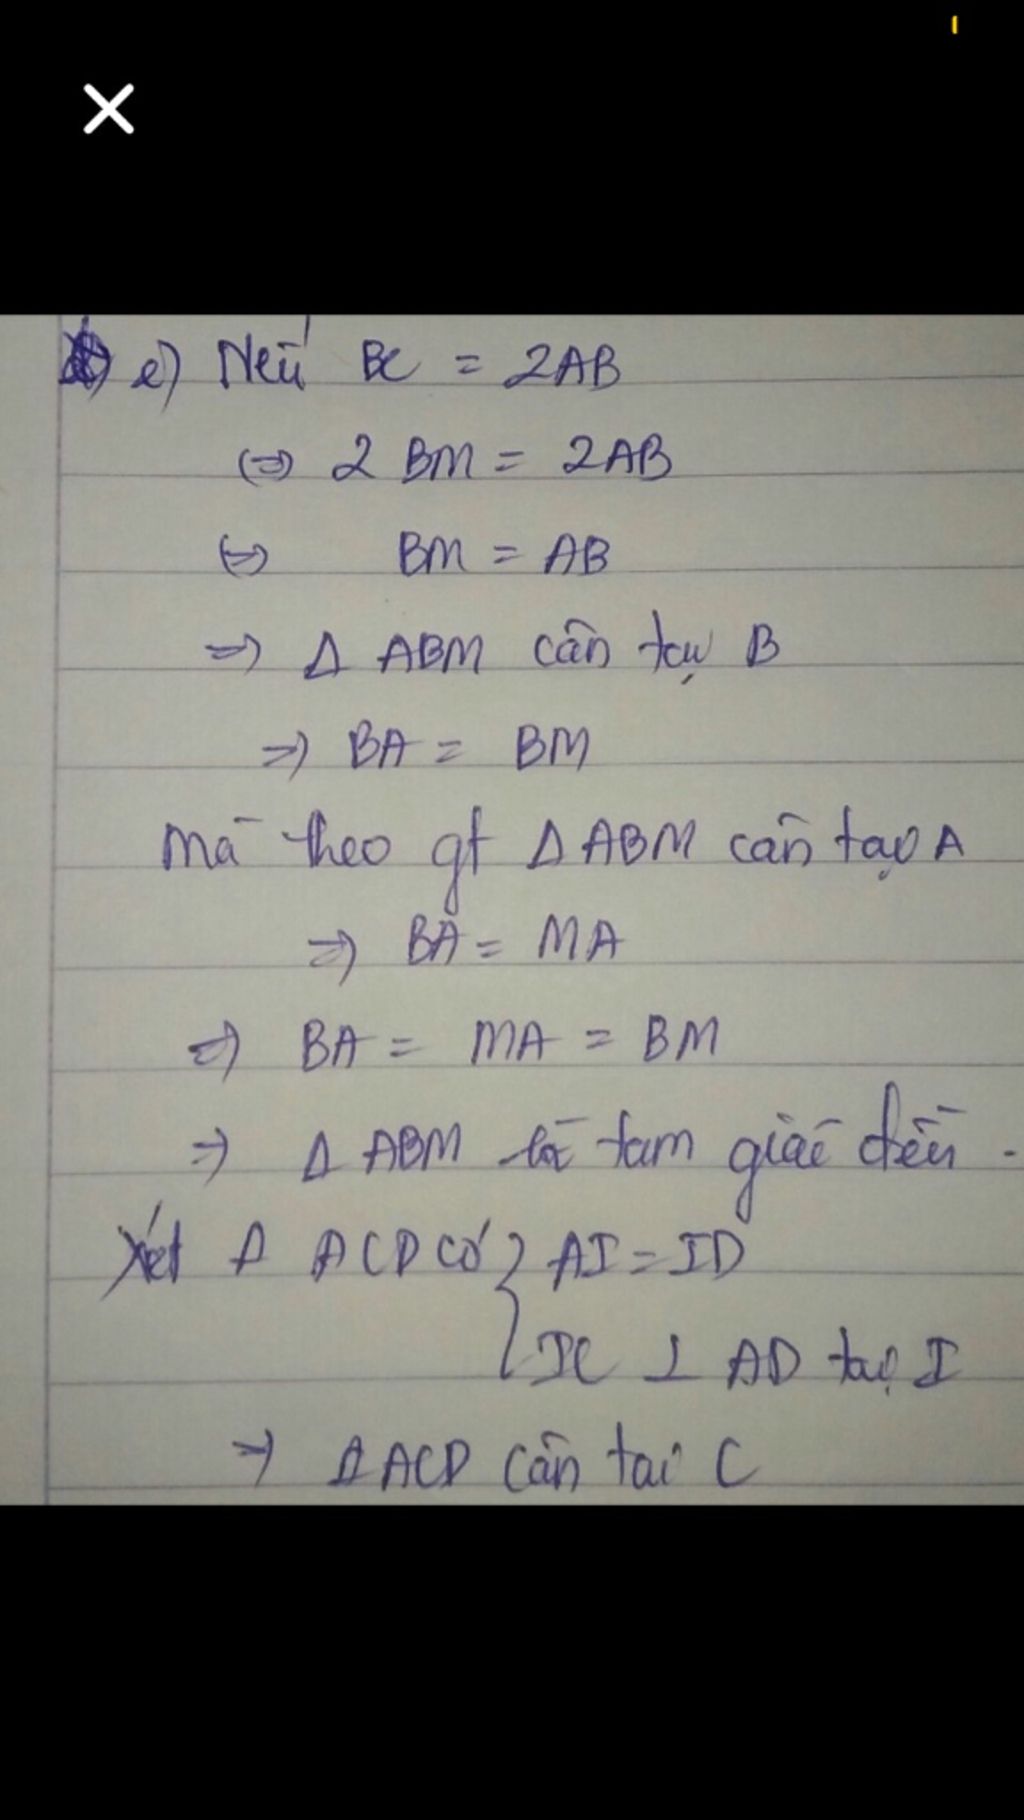 e) Nếu BC = 2AB
(=) 2 BM = 2AB
(=) BM = AB
=) Δ ABM cân tại B
=) BA = BM
mà theo gt Δ ABM cân tại A
=) BA = MA
=) BA = MA = BM
=) Δ ABM là tam giác đều.
Xét Δ ACD có { AI = ID
IC ⊥ AD tại I
=) Δ ACD cân tại C